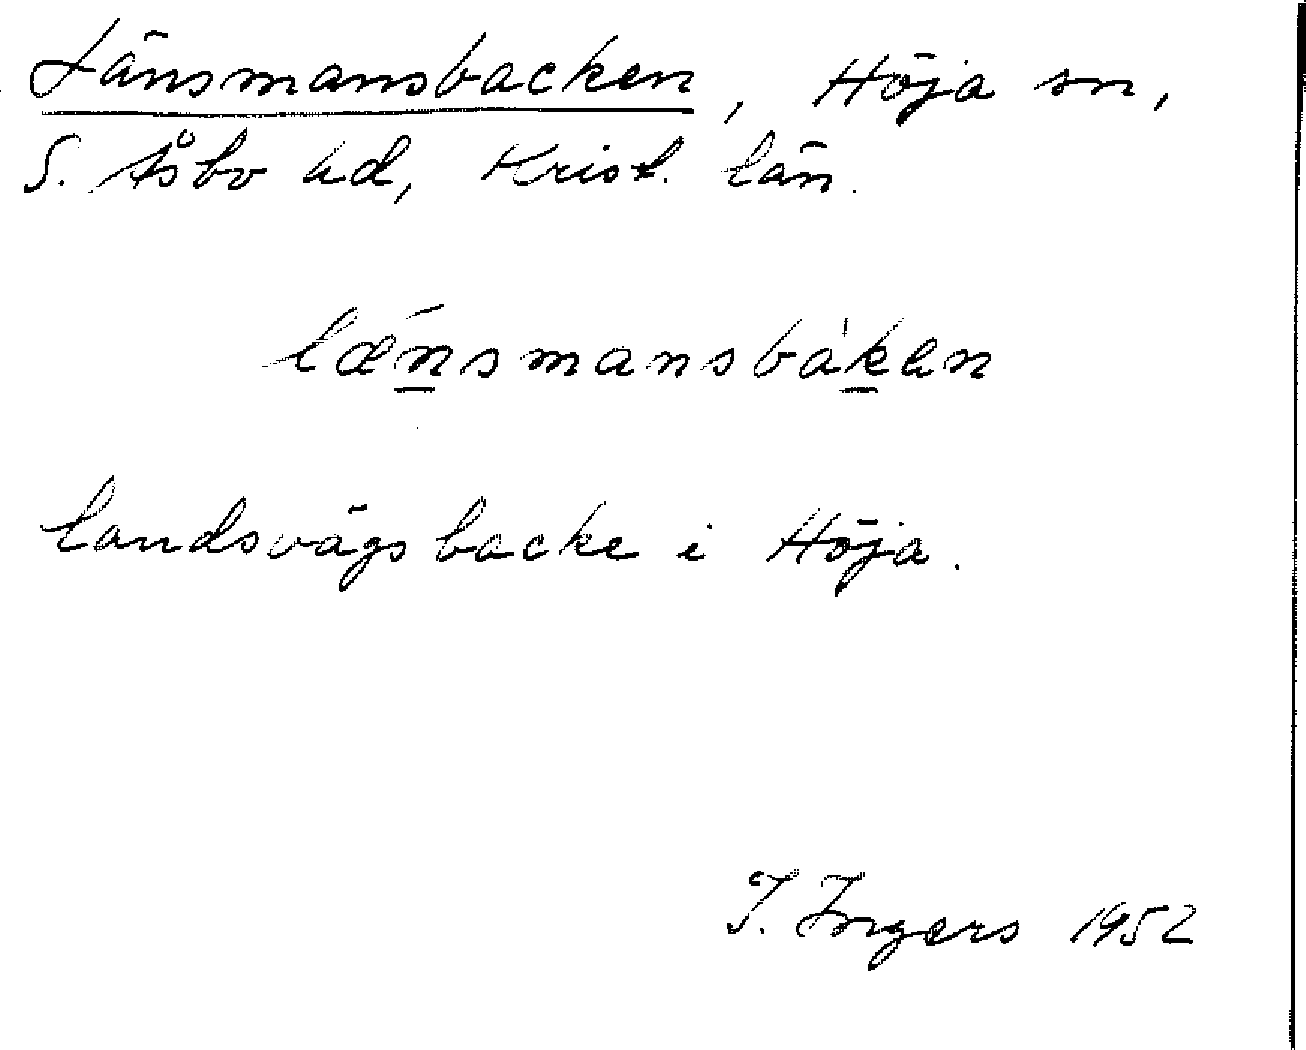 Länsmansbacken, Höja sn,
S. Åsbo hd, Krist. län.
lǽnsmansbàkan
landsvägsbacke i Höja.
I. Ingers 1952